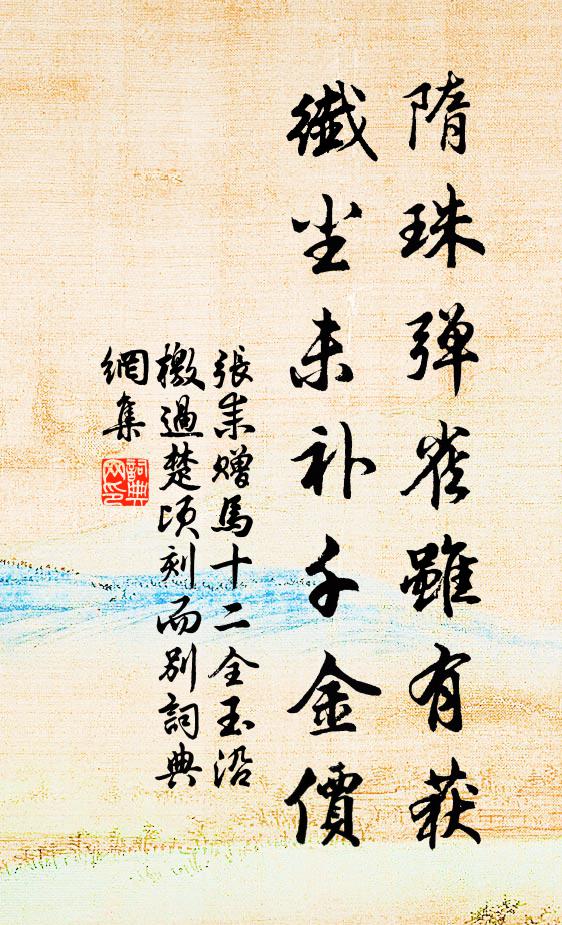 隋珠弹雀雖有获
纖尘未补千金價
張耒贈馬十二全玉沿
檄過楚頃刻而别詞典
網集
詞典
网印